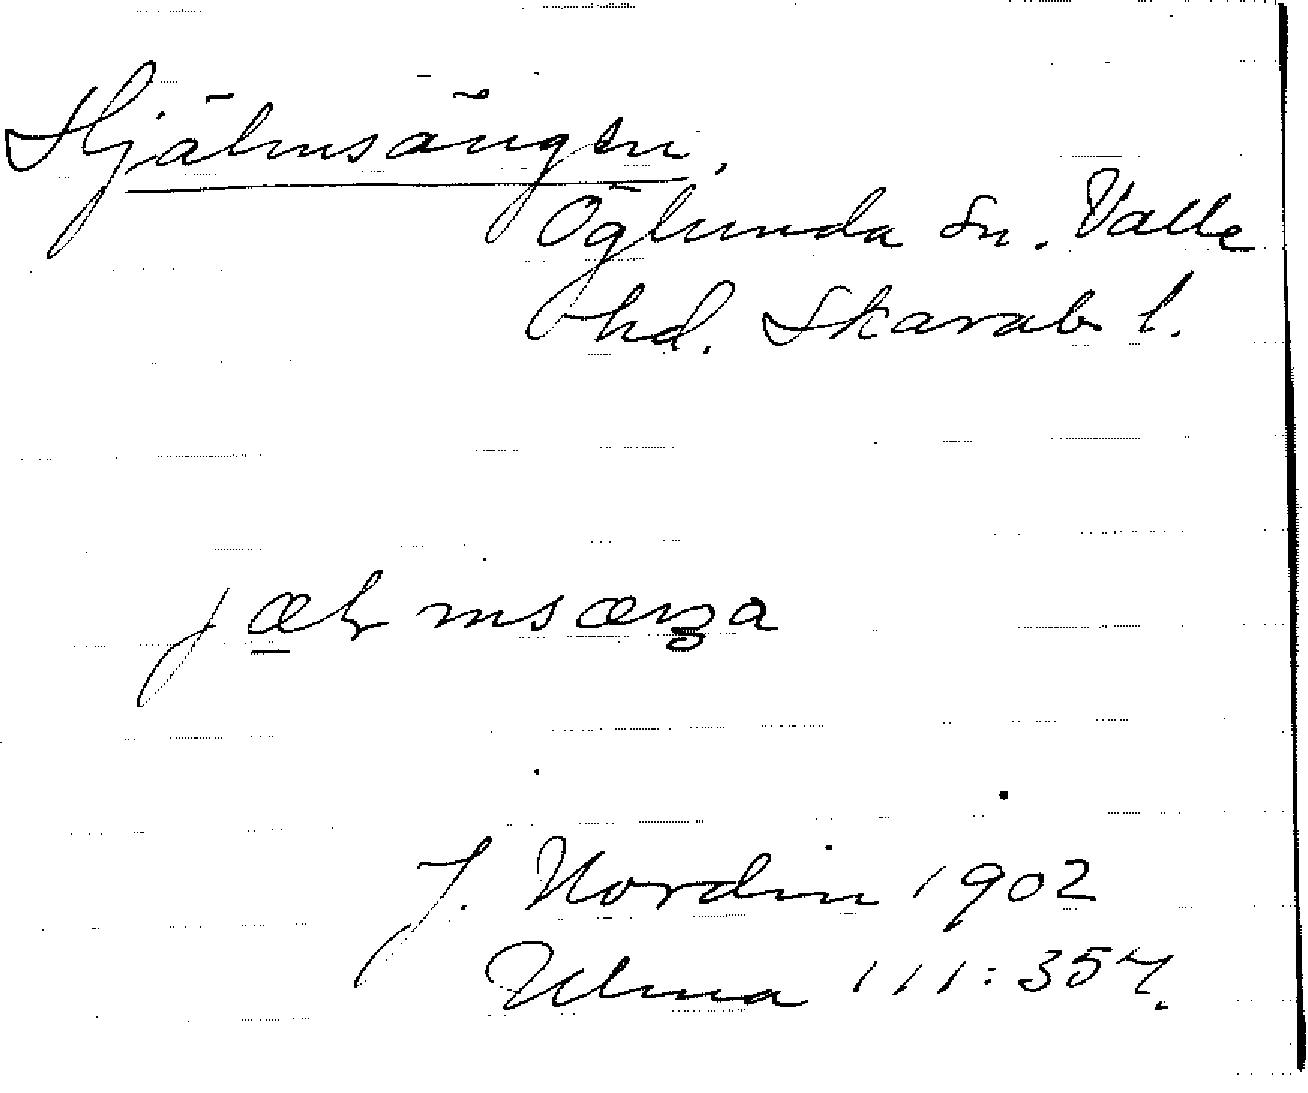 Hjälmsängen,
Öglunda sn. Valle
hd. Skarab. l.
J. Nordin 1902
Ulma 111:357.